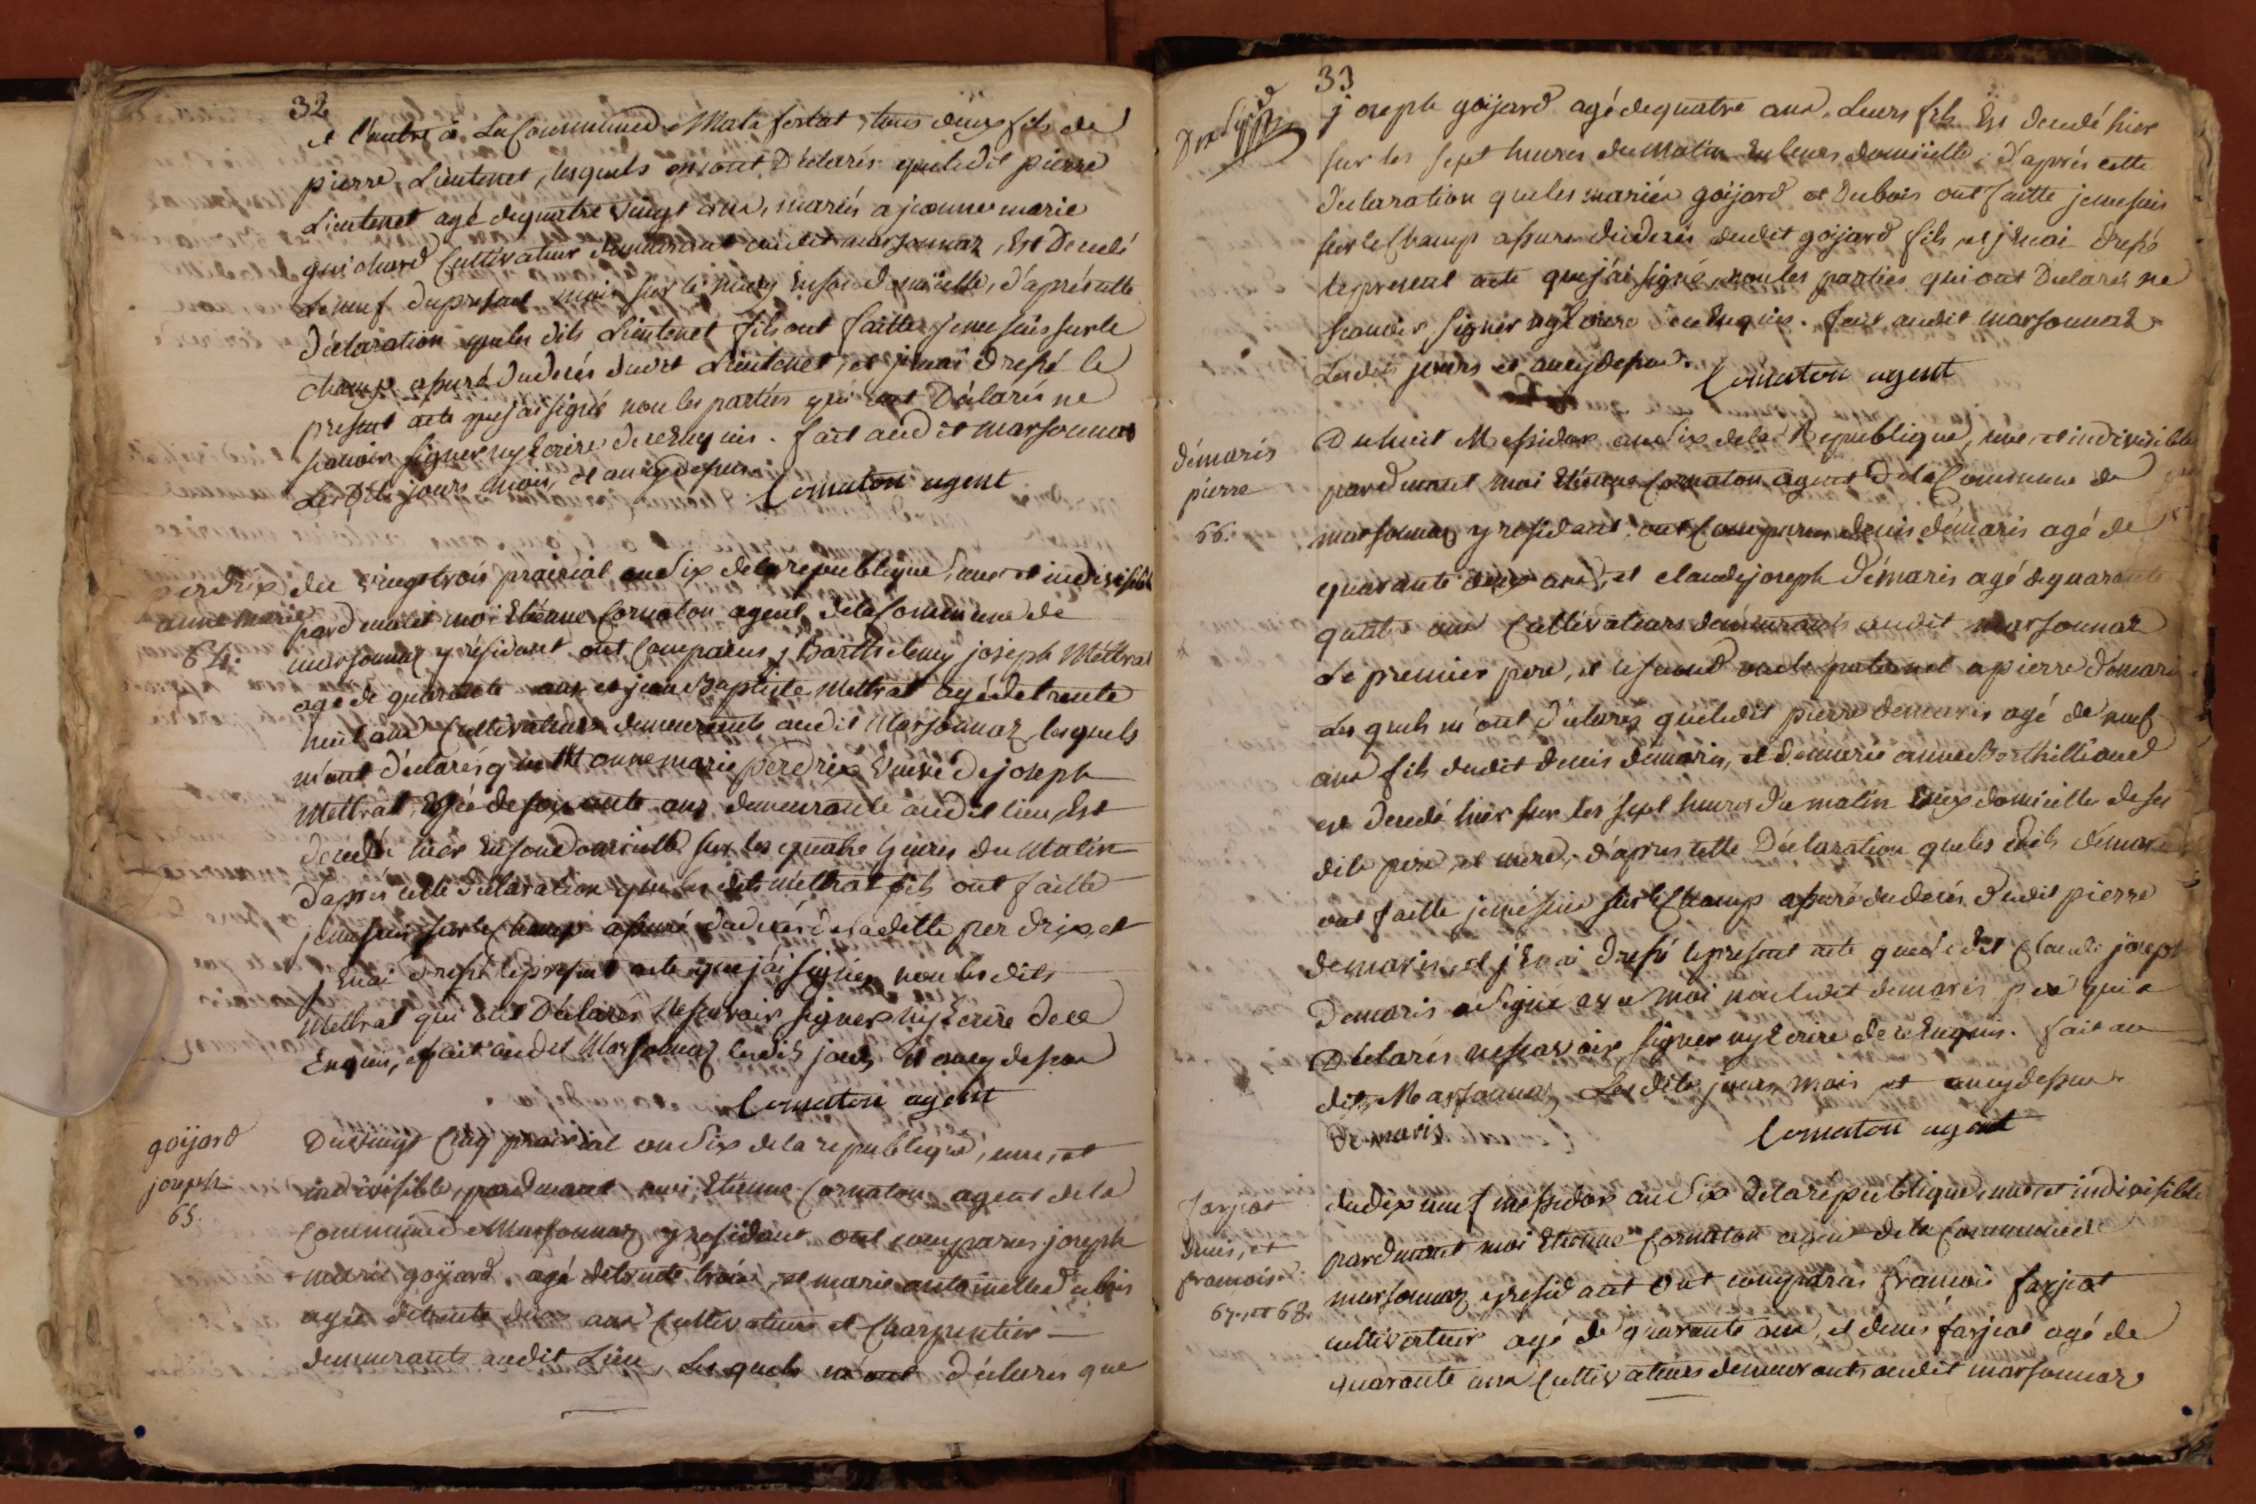 32
et l'autre à La Commune de Malafretat, tous deux fils de
pierre Lieutenet, lesquels m'ont Déclarés quele dit pierre
Lieutenet agé dequatre vingt ans, mariés a jeanne marie
guichard Cultivateur demeurant audit marsonnaz, Est Decedé
Le neuf du present mois sur le midy en son domicille, d'aprés cette
Déclaration queles dits Lieutenet fils ont faitte je me suis sur le
champ assuré du decés dudit Lieutenet, et j'enai dressé le
present acte quejai signé non les parties qui ont Déclarés ne
scavoir signer ny Ecrire de ce Enquis. fait audit marsonnas
Les Dits jours mois et an cydessus
Cornaton agent
perdrix
anne marie
64.
du vingt trois prairial an Six dela republique, une et indivisible
pardevant moi Etienne Cornaton agent dela Commune de
marsonnaz y résidant ont Comparus, Barthelemy joseph Mettrat
agé de quarante ans et jean Baptiste Mettrat agé de trente
huit ans Cultivateurs demeurants audit Marsonnaz, lesquels
m'ont déclarés que anne marie perdrix veuve de joseph
Mettrat, agée de soixante ans demeurante audit lieu, Est
decedée hier en son domicille sur les quatre heures du Matin
d'aprés cette déclaration que les dits Mettrat fils ont faitte
je me suis sur le Champ assuré du decés de la ditte perdrix, et
j'Enai dressé le present acte que jái signé, non les dits
Mettrat qui ont Déclarés Ne scavoir signer ny Ecrire de ce
Enquis, fait audit Marsonnaz lesdits jours et an cy dessus
Cornaton agent
goÿard
joseph
65.
Du vingt Cinq prairial an Six de la republique, une, et
indivisible, pardevant moi Etienne Cornaton agent de la
Commune de Marsonnaz y residant ont comparus joseph
marie goÿard agé de trente trois, et marie antoinette dubois
agée de trente deux ans Cultivateurs et Charpentier
demeurants audit Lieu, Les quels m'ont déclarés que
33
joseph goÿard agé de quatre ans, Leurs fils Est decedé hier
sur les sept heures du Matin en leurs domicille; d'aprés cette
declaration queles mariés goÿard et Dubois ont faitte je me suis
sur le Champ assuré du decés dudit goÿard fils, et j'enai dressé
le present acte que j'ái signé, non les parties qui ont Declarés ne
scavoir signer ny Ecrire de ce Enquis. fait audit marsonnaz
Lesdits jours et an cy dessus.
Cornaton agent
démaris
pierre
66.
Du huit Messidor an Six dela Republique, une, et indivisible
pardevant moi Etienne Cornaton agent de la Commune de
marsonnaz y residant ont Comparus denis démaris agé de
quarante deux ans, et claude joseph démaris agé de quarante
quatre ans Cultivateurs demeurants audit marsonnaz
Le premier pere, et le second oncle paternel a pierre démaris
Lesquels m'ont déclarés que ledit pierre demaris agé de neuf
ans fils dudit denis démaris, et de marie anne Berthilliand
est decedé hier sur les sept heures du matin aux domicille de ses
dits pere et mere, d'apres cette Déclaration que les dits démaris
ont faitte je me suis sur le Champ assuré du decés dudit pierre
demaris, et j'Enai dressé le present acte que le dit Claude joseph
Demaris a Signé avec moi non ledit demaris pere qui a
Déclarés ne scavoir signer ny Ecrire de ce Enquis. fait au
dit Marsonnaz, Les dits jours mois et an cy dessus
Demaris
Cornaton agent
farjat
denis, et
francois
67. et 68.
du dix neuf messidor an Six dela republique, une et indivisible
pardevant moi Etienne Cornaton agent de la Commune de
marsonnaz y residant ont comparus francois farjat
cultivateur agé de quarante ans, et denis farjat agé de
quarante ans Cultivateurs demeurants audit marsonnaz